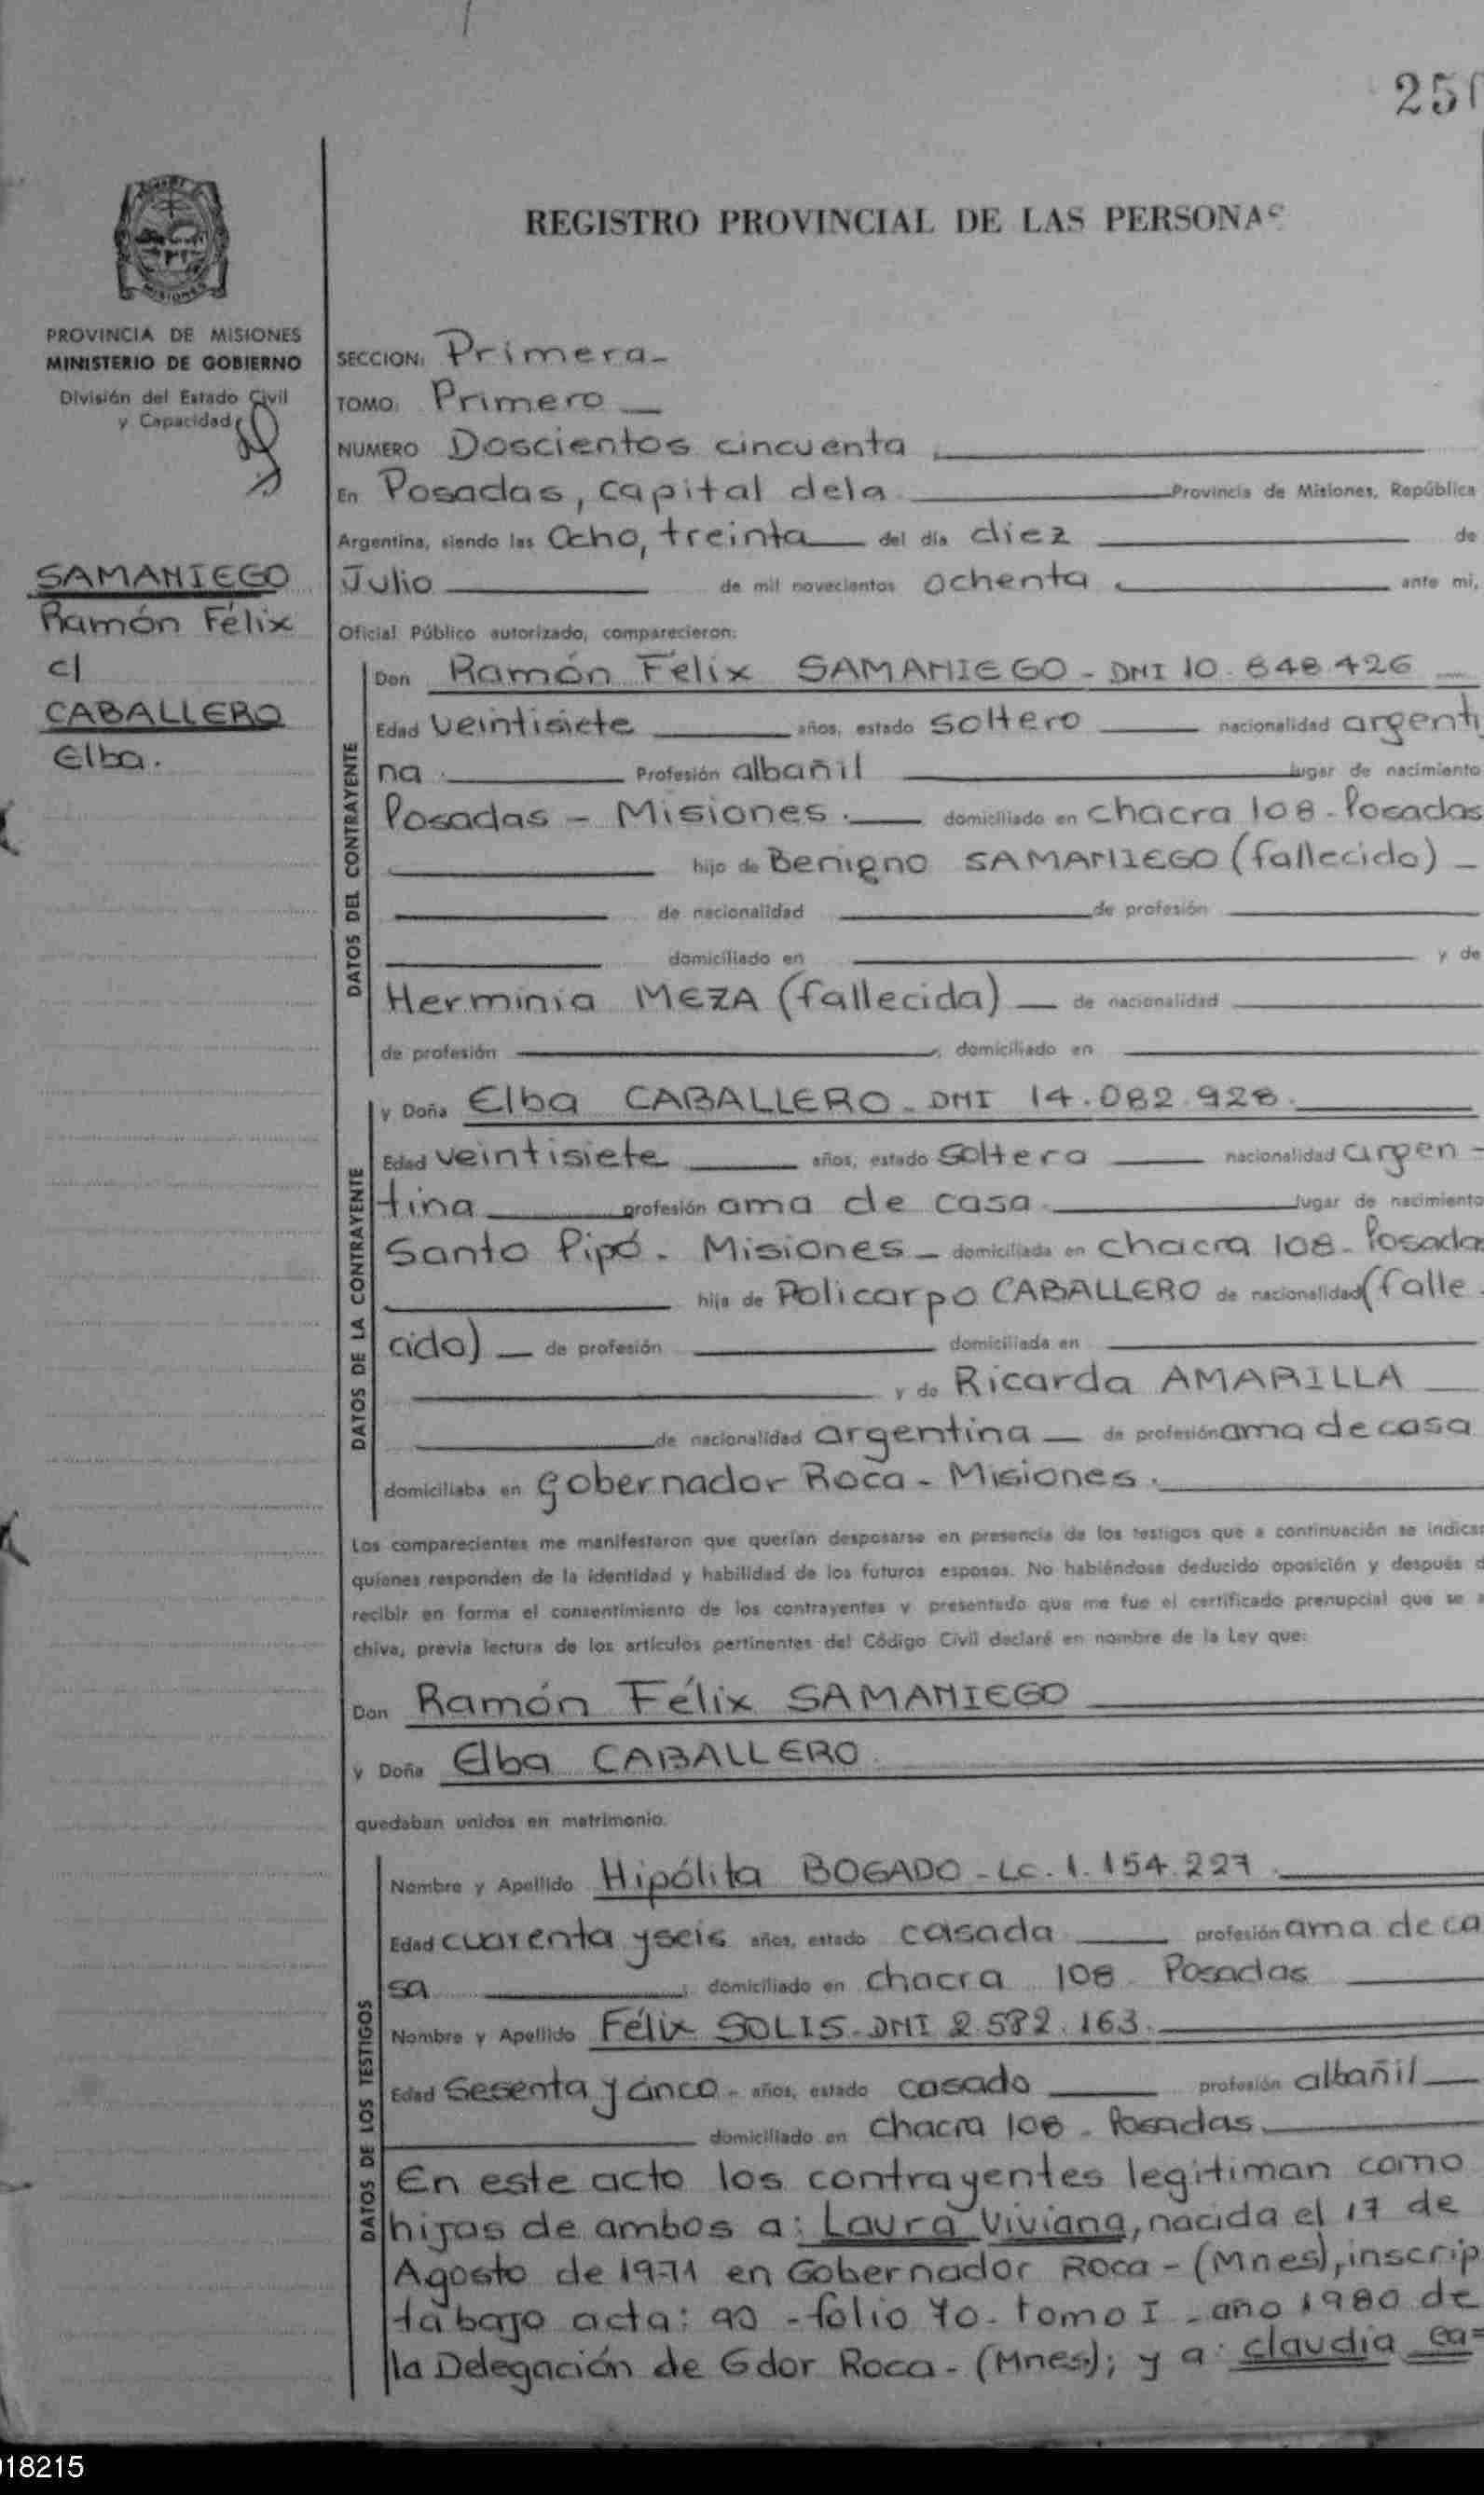 25
REGISTRO PROVINCIAL DE LAS PERSONAS
MISIONES
PROVINCIA DE MISIONES
MINISTERIO DE GOBIERNO
División del Estado Civil
y Capacidad
SAMANIEGO
Ramón Félix
c/
CABALLERO
Elba.
SECCION: Primera-
TOMO: Primero
NUMERO Doscientos cincuenta
En Posadas, capital dela Provincia de Misiones, República
Argentina, siendo las Ocho, treinta del día diez de
Julio de mil novecientos ochenta ante mi,
Oficial Público autorizado, comparecieron:
DATOS DEL CONTRAYENTE
Don Ramón Félix SAMANIEGO - DNI 10.848.426
Edad veintisiete años, estado soltero nacionalidad argenti
na Profesión albañil lugar de nacimiento
Posadas - Misiones. domiciliado en chacra 108 - Posadas
hijo de Benigno SAMANIEGO (fallecido) -
de nacionalidad de profesión
domiciliado en y de
Herminia MEZA (fallecida) de nacionalidad
de profesión domiciliado en
DATOS DE LA CONTRAYENTE
y Doña Elba CABALLERO - DNI 14.082.928.
Edad veintisiete años, estado soltera nacionalidad argen-
tina profesión ama de casa lugar de nacimiento
Santo Pipó - Misiones - domiciliada en chacra 108 - Posadas
hija de Policarpo CABALLERO de nacionalidad (falle
cido) - de profesión domiciliada en
y de Ricarda AMARILLA
de nacionalidad argentina de profesión ama de casa
domiciliaba en Gobernador Roca - Misiones.
Los comparecientes me manifestaron que querían desposarse en presencia de los testigos que a continuación se indican
quienes responden de la identidad y habilidad de los futuros esposos. No habiéndose deducido oposición y después d
recibir en forma el consentimiento de los contrayentes y presentado que me fue el certificado prenupcial que se a
chiva, previa lectura de los artículos pertinentes del Código Civil declaré en nombre de la Ley que:
Don Ramón Félix SAMANIEGO
y Doña Elba CABALLERO.
quedaban unidos en matrimonio.
DATOS DE LOS TESTIGOS
Nombre y Apellido Hipólita BOGADO - LC. 1.154.227.
Edad cuarenta y seis años, estado casada profesión ama de ca
sa ; domiciliado en chacra 108 - Posadas
Nombre y Apellido Félix SOLIS - DNI 2.582.163.
Edad Sesenta y cinco - años, estado casado profesión albañil
domiciliado en chacra 108 - Posadas.
En este acto los contrayentes legitiman como
hijas de ambos a: Laura Viviana, nacida el 17 de
Agosto de 1971 en Gobernador Roca - (Mnes), inscrip
ta bajo acta: 90 - folio 70 - tomo I - año 1980 de
la Delegación de Gdor Roca - (Mnes); y a: claudia ca=
018215